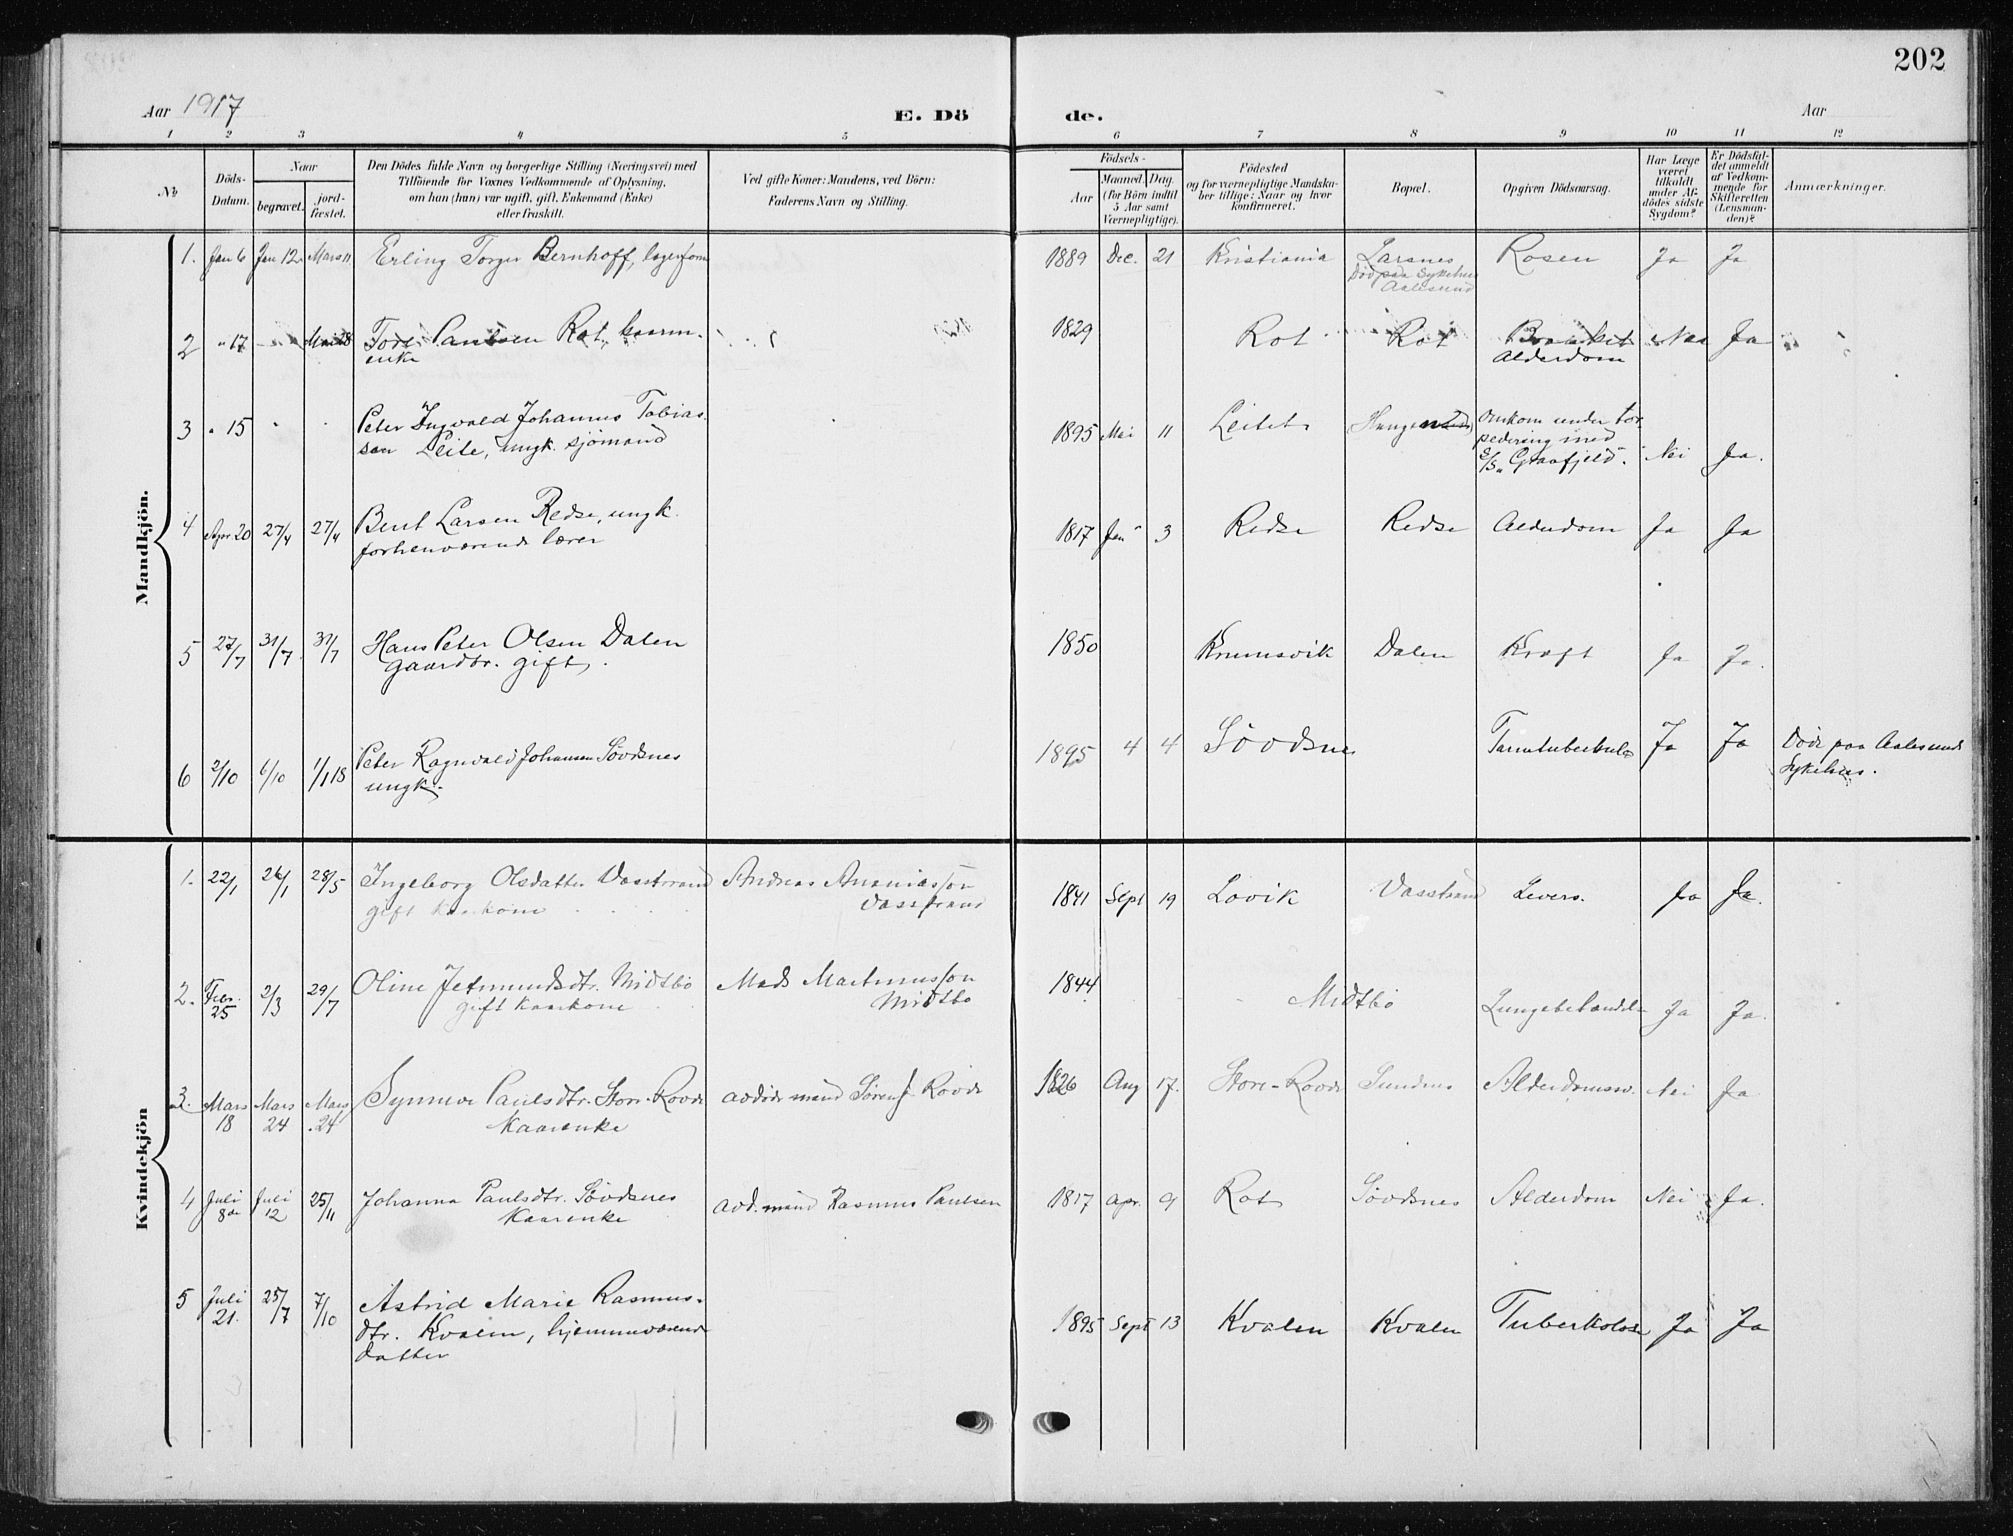 202
Aar 1917
E. Dö
de.
Aar
1 2 3 4 5 6 7 8 9 10 11 12
No
Döds-
Datum.
Naar
begravet.
jord-
fæstet.
Den Dödes fulde Navn og borgerlige Stilling (Næringsvei) med
Tilföiende for Voxnes Vedkommende af Oplysning,
om han (hun) var ugift, gift, Enkemand (Enke)
eller fraskilt.
Ved gifte Koner: Mandens, ved Börn:
Faderens Navn og Stilling.
Födsels-
Aar
Maaned. Dag.
(for Börn indtil
5 Aar samt
Værnepligtige).
Födested
og for værnepligtige Mandska-
ber tillige: Naar og hvor
konfirmeret.
Bopæl.
Opgiven Dödsaarsag.
Har Læge
været
tilkaldt
under Af-
dödes sidste
Sygdom?
Er Dödsfal-
det anmeldt
af Vedkom-
mende for
Skifteretten
(Lensman-
den)?
Anmærkninger.
Mandkjön.
1. Jan 6 Jan 12 Mars 11 Erling Torger Bernhoff, lagerfom 1889 Dec. 21 Kristiania Larsnes Rosen Ja Ja
Död paa Sykehus
Aalesund
2 " 17 Mai 28 Tore Paulsen Rot, kaarm- 1829 Rot Rot Nei Ja
enke Alderdom
3 " 15 Peter Ingvald Johannes Tobias- 1895 Mai 11 Leitet Omkom under tor-
sen Leite, ungk. sjömand pedering med
S/S "Graafjeld". Nei Ja.
4 Apr 20 27/4 27/4 Bent Larsen Redse, ungk. 1817 Jan 3 Redse Redse Alderdom Ja Ja
forhenværende lærer
5 27/7 31/7 31/7 Hans Peter Olsen Dalen 1850 Krumsvik Dalen Kræft Ja Ja.
gaardbr. gift.
6 2/10 6/10 1/1 18 Peter Ragnvald Johansen Sövdsnes 1895 4 4 Sövdsnes Tarmtuberkulose Ja Ja Döde paa Aalesunds
ungk. Sykehus.
Kvindekjön
1. 22/1 26/1 28/5 Ingeborg Olsdatter Vasstrand Andreas Ananiasson 1841 Sept 19 Lovik Vasstrand Levers. Ja Ja.
gift kaarkone Vasstrand
2. Febr. 25 2/3 29/7 Oline Jetmundsdtr. Midtbö Mads Martinusson 1844 Midtbö Lungebetændelse Ja Ja.
gift kaarkone Midtbö
3. Mars 18 Mars 24 Mars 24 Synneve Paulsdtr. Store-Rovde avdöde mand Sören J Rovde 1826 Aug 17. Store-Rovde Sundnes Alderdomssv. Nei Ja
Kaarenke
4 Juli 8de Juli 12 25/11 Johanna Paulsdtr. Sövdsnes avd. mand Rasmus Paulsen 1817 Apr. 9 Rot Sövdsnes Alderdom Nei Ja.
Kaarenke
5 Juli 21. 25/7 7/10 Astrid Marie Rasmus- 1895 Sept 13 Kvalen Kvalen Tuberkolose Ja Ja
dtr. Kvalen, hjemmeværende
datter